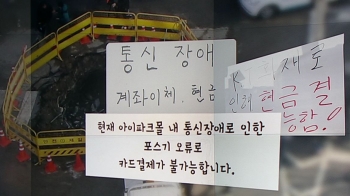 통신 장애
계좌이체, 현금
K 화재로
인해 현금 결
능함!
현재 아이파크몰 내 통신장애로 인한
포스기 오류로
카드결제가 불가능합니다.